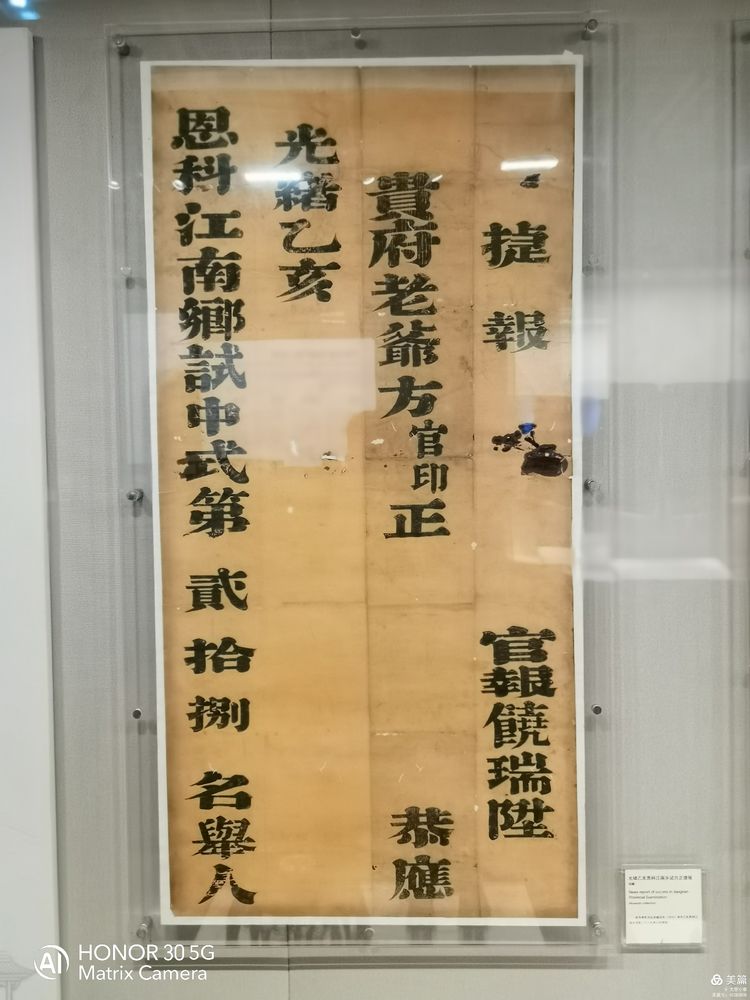 捷報
官報饒瑞陞
貴府老爺方官印正
恭應
光緒乙亥
恩科江南鄉試中式第貳拾捌名舉人
News report of success in Jiangnan
Provincial Examination
HONOR 30 5G
Matrix Camera
美篇